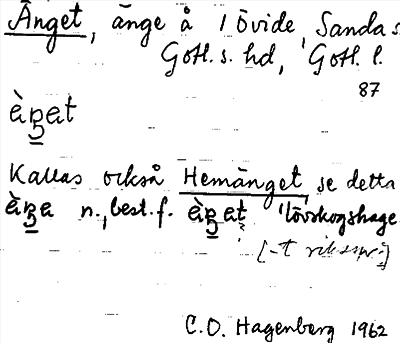 Änget, änge å 1 Övide, Sanda s.
Gotl. s. hd, Gotl. l.
87
Kallas också Hemänget, se detta
n., best. f. 'lövskogshage'
[-t
C.O. Hagenberg 1962